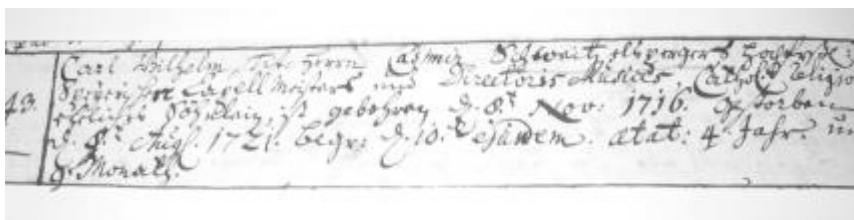 43. Carl Wilhelm, Tit. Herrn Casimir Schweitzelspergers Hochfürstl:
Capellmeisters und Directoris Musices, Cathol: Religion
eheliches Söhnlein, ist gebohren d. 8t Nov: 1716. gestorben
d. 8t Augs. 1721. begr: d. 10t ejusdem. ætat: 4 Jahr. un
9. Monath.